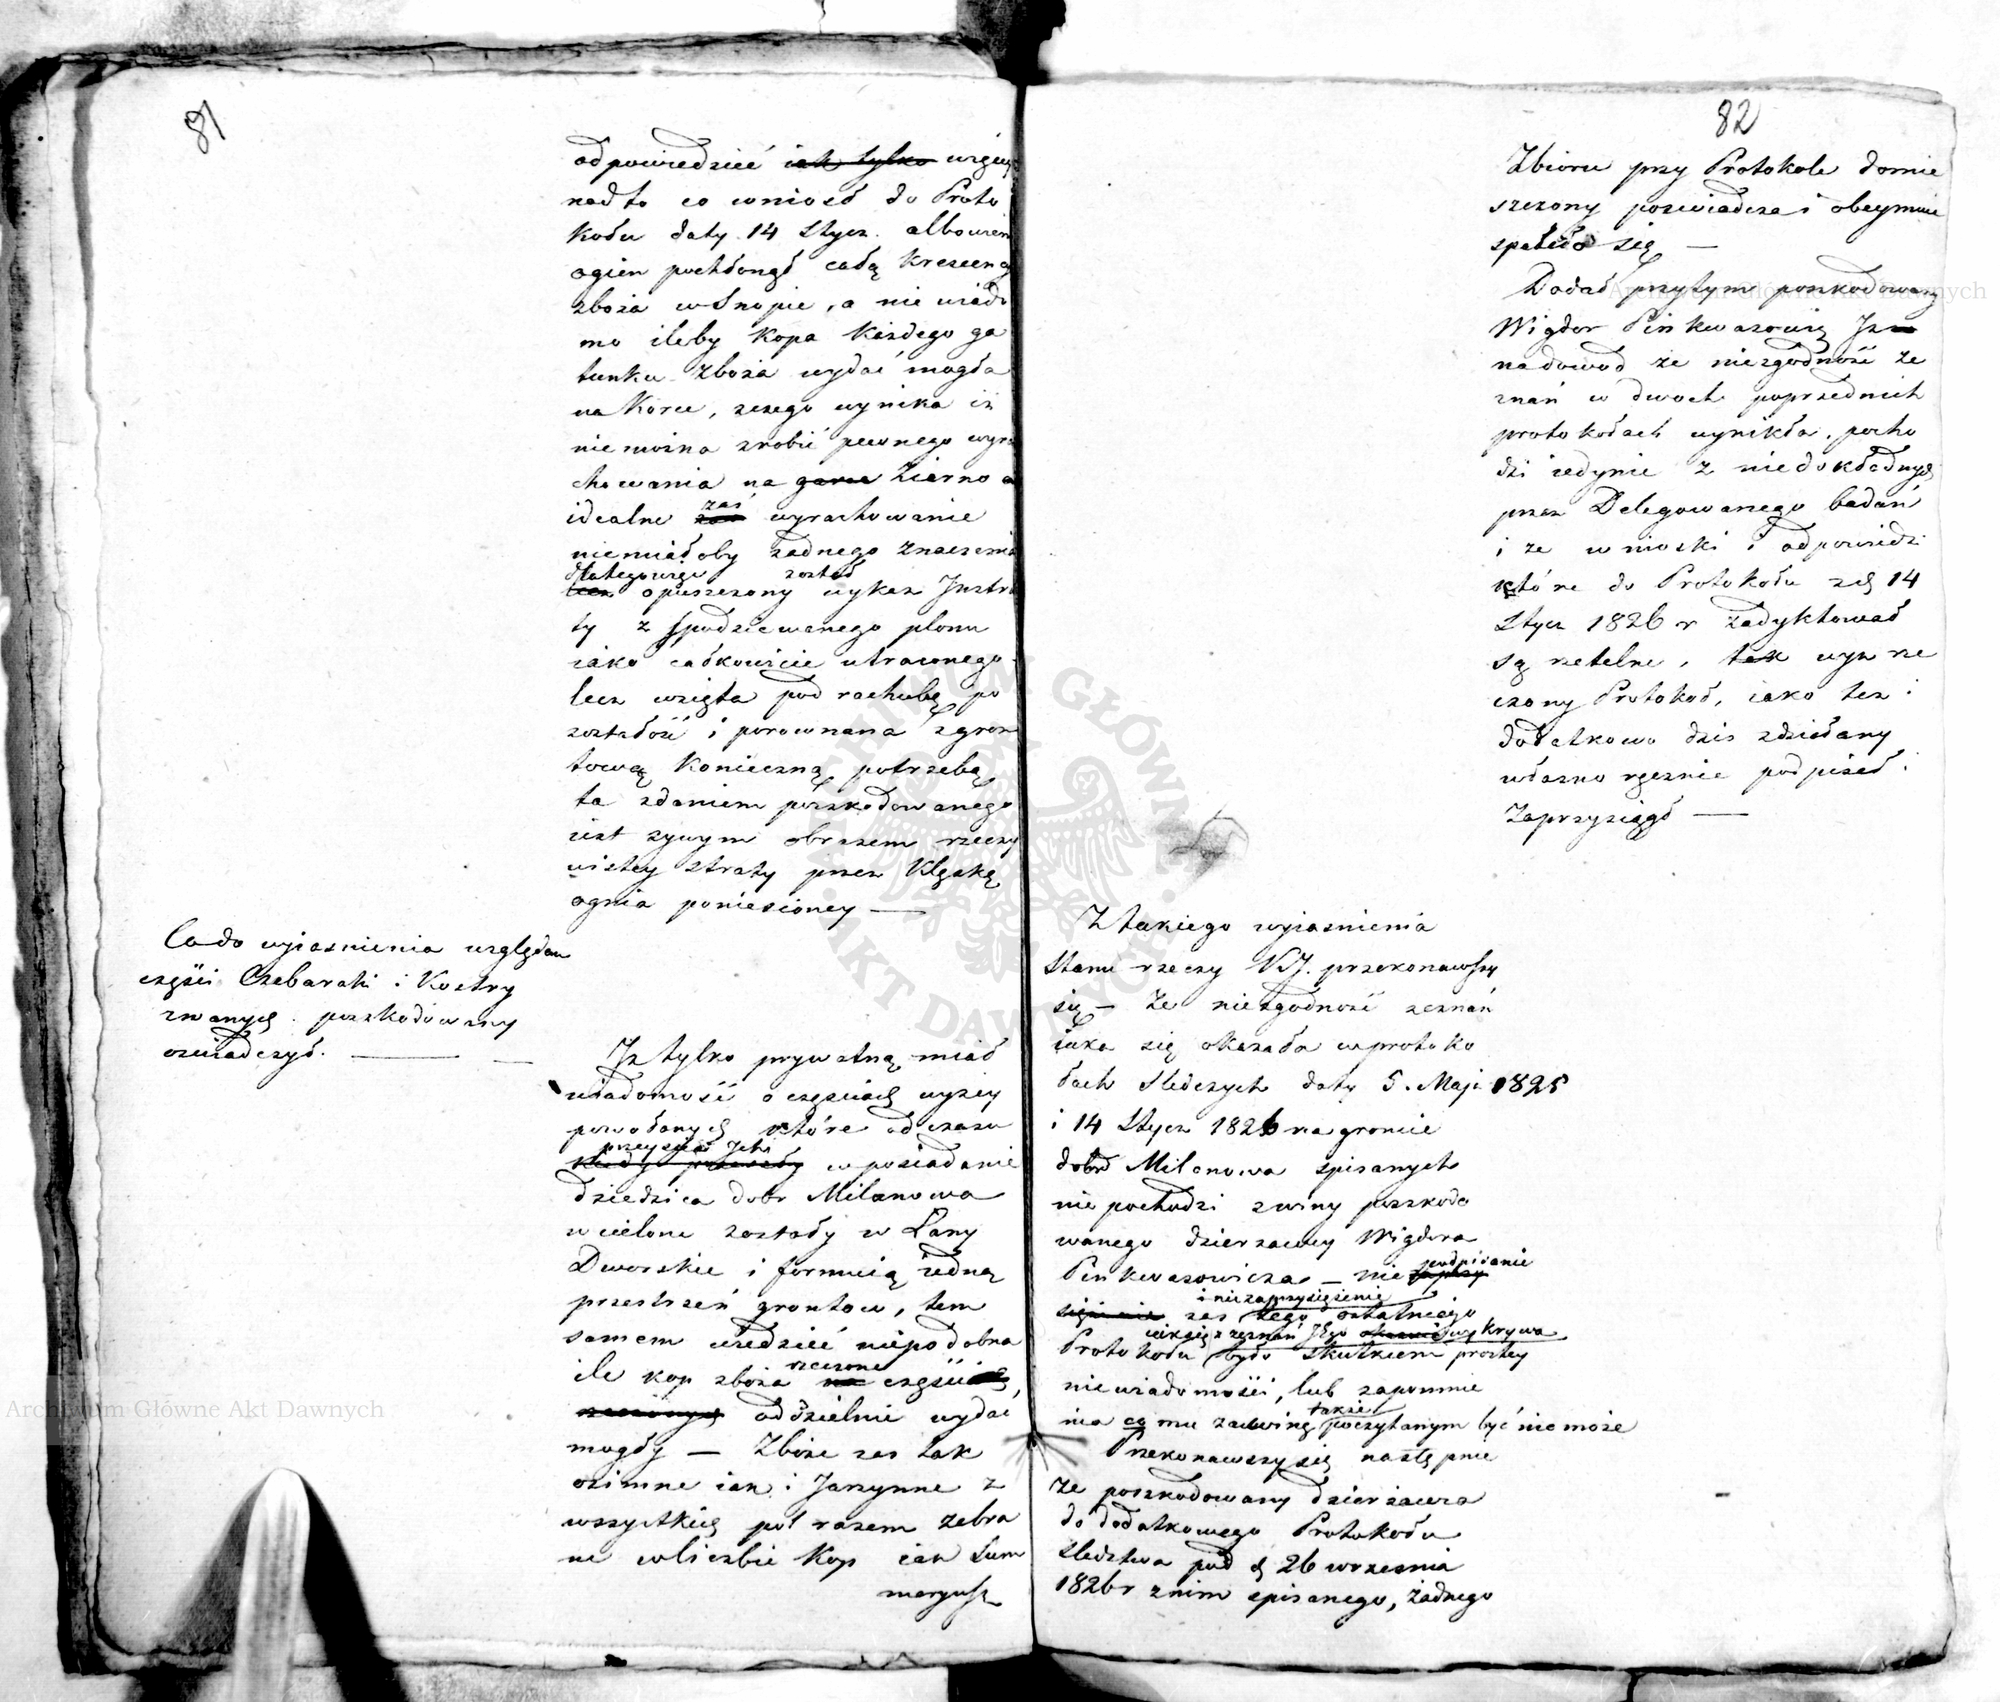 81
odpowiedzieć iak tylko więcey
nadto co wniosł do Proto
kołu daty 14 Stycz. albowiem
ogien pochłonął całą krescencyą
zboża w Snopie, a nie wiado
mo ileby kopa każdego ga
tunku zboża wydać mogła
na Korce, z czego wynika iż
nie można zrobić pewnego wyra
chowania na ziarno a
zaś
idealne wyrachowanie
niemiałoby żadnego znaczenia
dlategowięc został
lecz opuszczony wykaz Intra
ty z Spodziewanego plonu
iako całkowicie utraconego
lecz wzięta pod rachubę po
zostałość i porownana z grun
tową konieczną potrzebą
ta zdaniem poszkodowanego
iest żywym obrazem rzeczy
wistey straty przez Klęskę
ognia poniesioney —
Co do wyiasnienia względem
części Chebarski i Kostry
zwanych poszkodowany
oświadczył. —
Iż tylko prywatną miał
wiadomość o częściach wyżey
powołanych które od czasu
przeyścia Ich
kiedy przeszły w posiadanie
dziedzica dobr Milanowa
wcielone zostały w Łany
Dworskie i formuią iedną
przestrzeń gruntow, tem
samem wiedzieć niepodobna
rzeczone
ile kop zboża na części
rzeczonych oddzielnie wydać
mogły — Zboże zas tak
ozimne iak i Jarzynne z
wszystkich pol razem zebra
ne w liczbie kop iak Sum
maryusz
82
Zbioru przy Protokole domie
szczony poswiadcza i obeymuie
spaliło się —
Dodał przytym poszkodowany
Wigdor Pinkwasowicz Iż
na dowod że niezgodność ze
znań w dwoch poprzednich
protokołach wynikła, pocho
dzi iedynie z niedokładnych
przez Delegowanego badań
i że wnioski i odpowiedzi
które do Protokołu z d 14
Stycz 1826 r zadyktował
są rzetelne, tak wyż rze
czony Protokoł, iako też i
dodatkowo dzis zdziałany
własno ręcznie podpisał i
Zaprzysiągł —
Z takiego wyiasnienia
Stanu rzeczy przekonawszy
się — że niezgodność zeznań
iaka się okazała w protoko
łach Sledczych daty 5. Maja 1825
i 14 Stycz 1826 na gruncie
dobr Milanowa spisanych
nie pochodzi z winy poszkodo
wanego dzierzawcy Wigdora
podpisanie
Pinkwasowicza — nie zaprzy
i nie zaprzysiężenie
sięże nie zas tego ostatniego
iak się z zeznań Jego wykrywa
Protokołu było skutkiem prostey
niewiadomości, lub zapomnie
także
nia co mu za winę poczytanym być nie może
Przekonawszy się następnie
że poszkodowany dzierżawca
do dodatkowego Protokołu
Sledztwa pod d 26 września
1826 r z nim spisanego, żadnego
Archiwum Główne Akt Dawnych
Archiwum Główne Akt Dawnych
ARCHIWUM GŁÓWNE AKT DAWNYCH